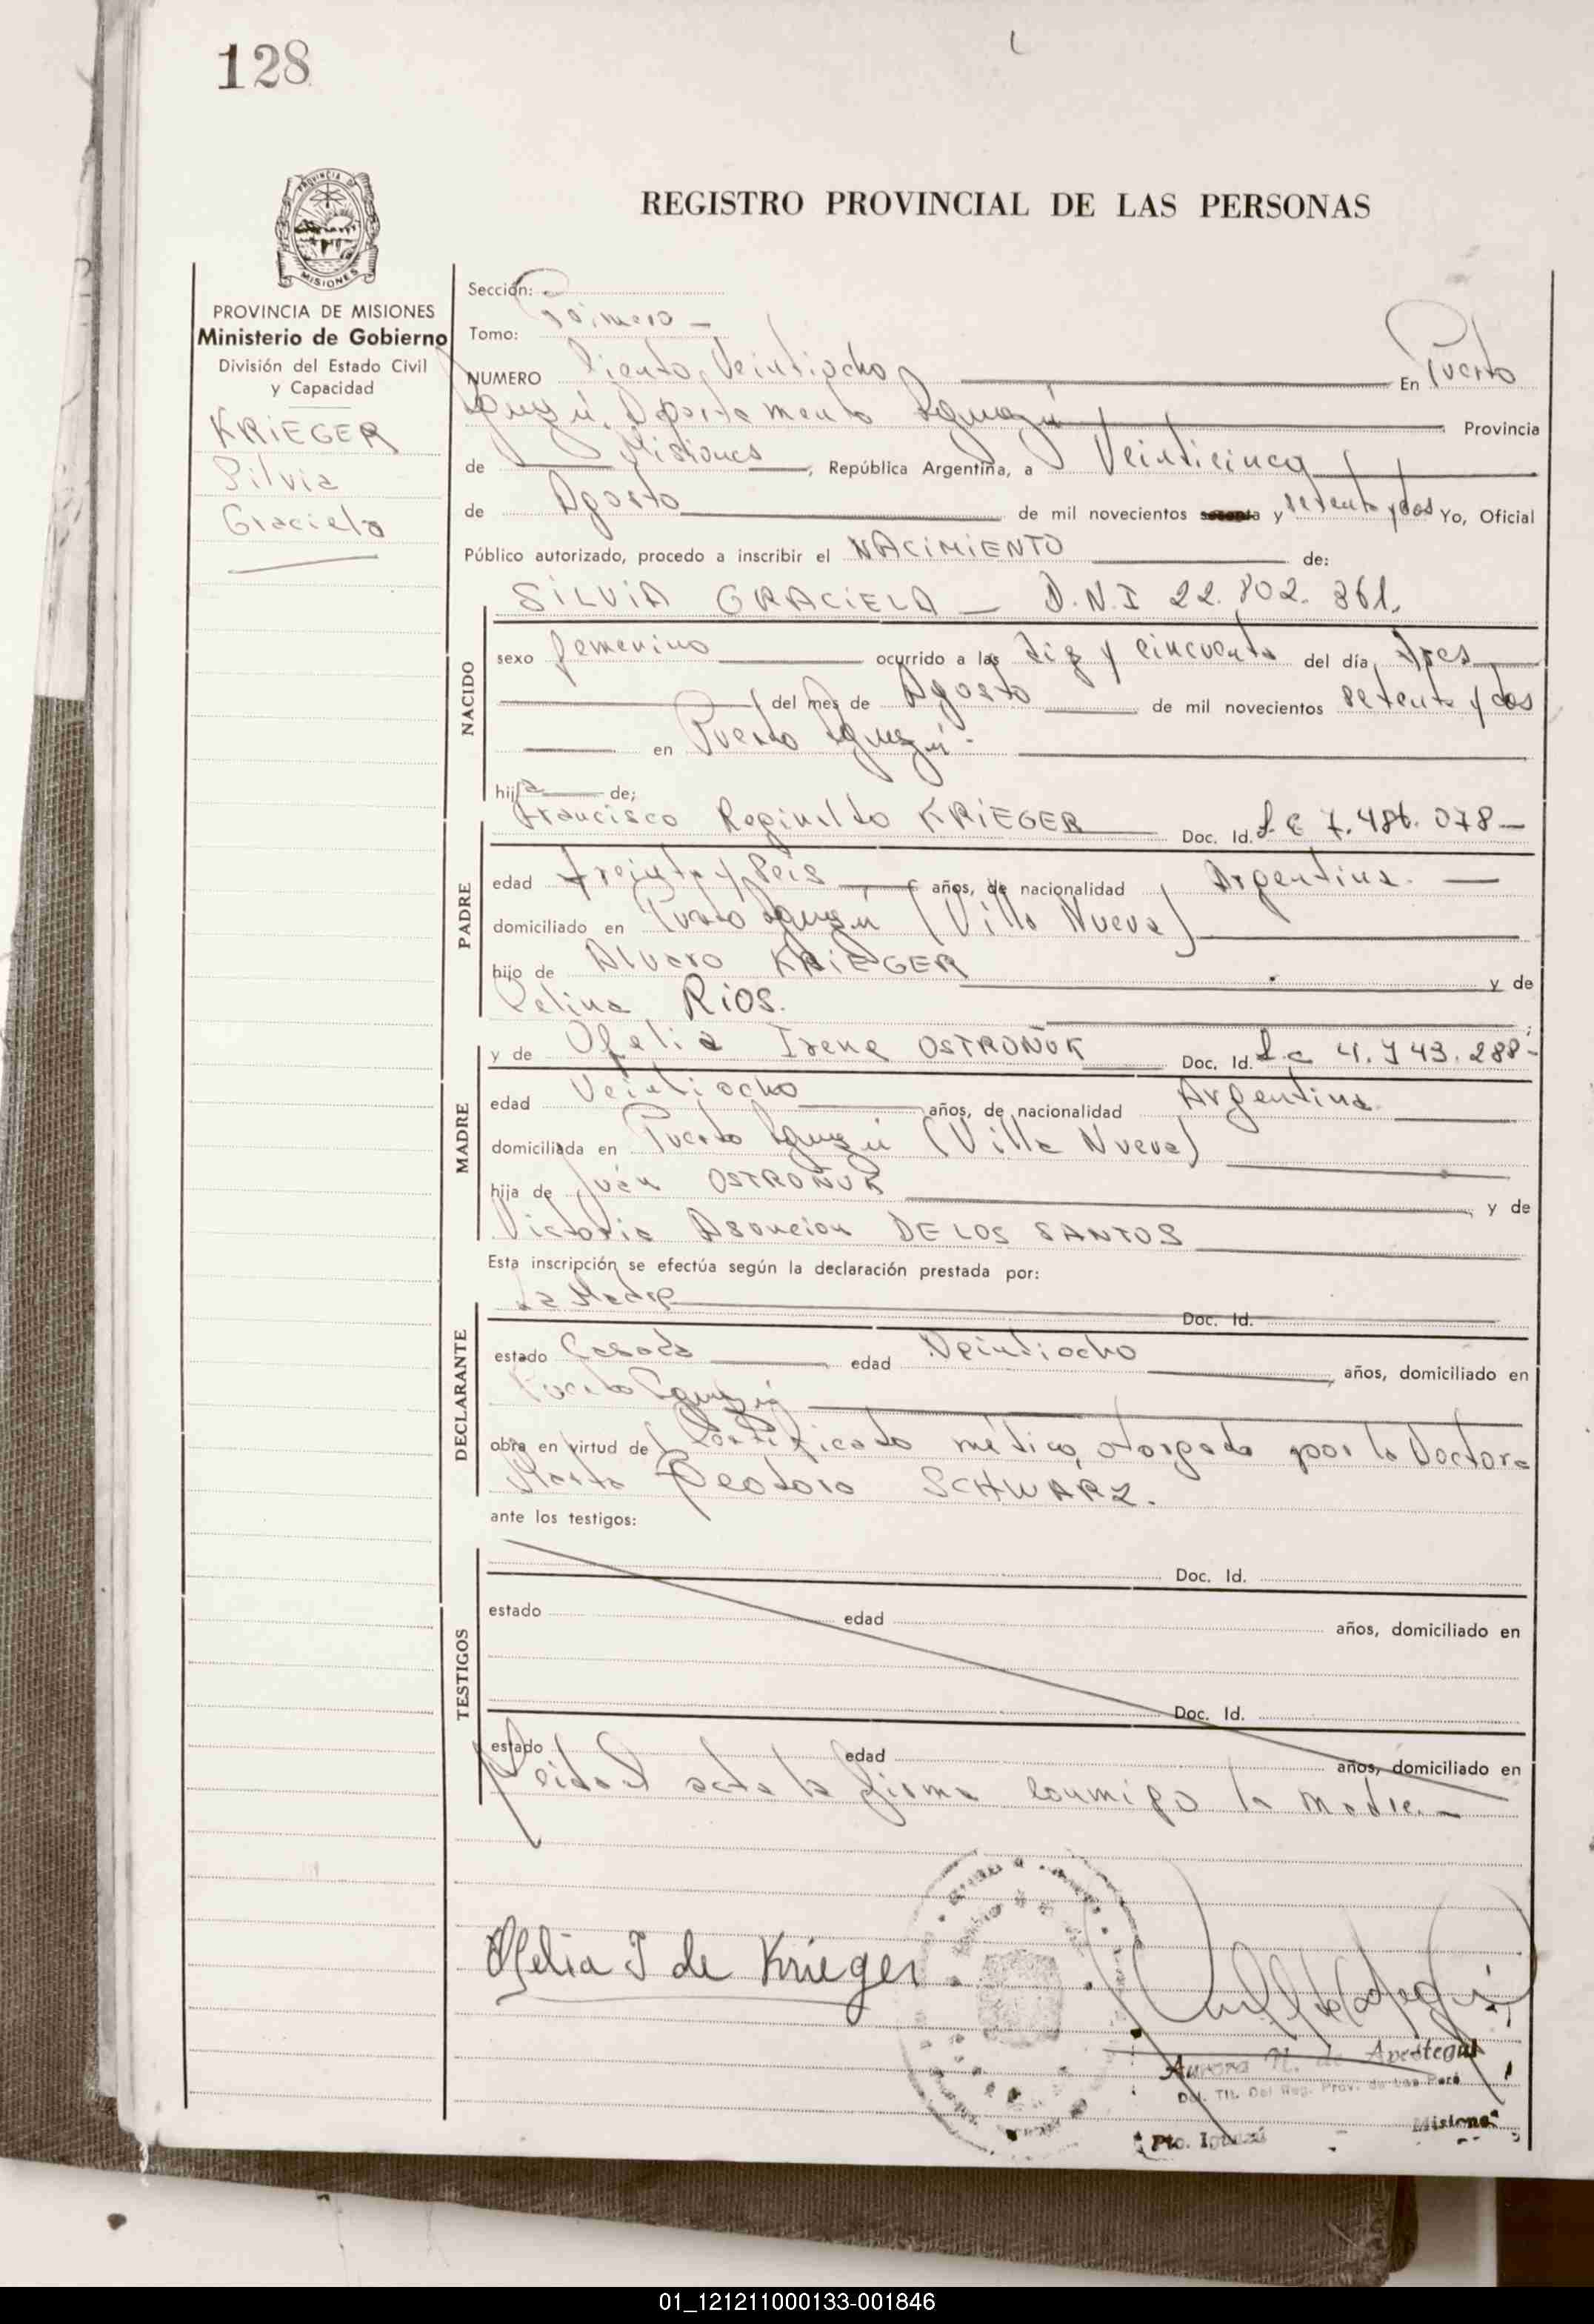 128
REGISTRO PROVINCIAL DE LAS PERSONAS
PROVINCIA DE MISIONES
Ministerio de Gobierno
División del Estado Civil
y Capacidad
KRiEGER
Silvia
Graciela
Sección:
Tomo: Primero -
NUMERO Ciento Veintiocho En Puerto
Iguazú, Departamento Iguazú Provincia
de Misiones, República Argentina, a Veinticinco
de Agosto de mil novecientos sesenta y setenta y dos Yo, Oficial
Público autorizado, procedo a inscribir el NACiMiENTO de:
SiLViA GRACiELA - D.N.I 22.802.361.
NACIDO
sexo femenino ocurrido a las diez y cincuenta del día tres
del mes de Agosto de mil novecientos setenta y dos
en Puerto Iguazú -
hija de;
Francisco Reginaldo KRiEGER Doc. Id. L E 7.486.078 -
PADRE
edad treinta y seis años, de nacionalidad Argentina. -
domiciliado en Puerto Iguazú (Villa Nueva)
hijo de Alvaro KRiEGER y de
Celina RiOS.
MADRE
y de Ofelia Irene OSTROÑUK Doc. Id. L c 4.743.288 -
edad Veintiocho años, de nacionalidad Argentina
domiciliada en Puerto Iguazú (Villa Nueva)
hija de Juan OSTROÑUK y de
Victoria Asuncion DE LOS SANTOS
Esta inscripción se efectúa según la declaración prestada por:
La Madre Doc. Id.
DECLARANTE
estado Casada edad Veintiocho años, domiciliado en
Puerto Iguazú
obra en virtud de Certificado médico, otorgado por la Doctora
Marta Teodora SCHWARZ.
ante los testigos:
TESTIGOS
Doc. Id.
estado edad años, domiciliado en
Doc. Id.
estado edad años, domiciliado en
Leida el acta la firma conmigo la madre. -
Ofelia I de Krieger
Aurora N. de Apestegui
Del. Tit. Del Reg. Prov. de Las Pers
Pto. Iguazú Misiones
01_121211000133-001846